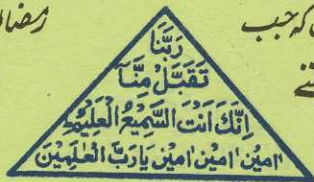 رمضا
کہ جب
رَبَّنَا
تَقَبَّلْ مِنَّآ
اِنَّكَ اَنْتَ السَّمِيْعُ الْعَلِيْمُ
اٰمِيْن اٰمِيْن اٰمِيْن يَارَبَّ الْعٰلَمِيْنَ